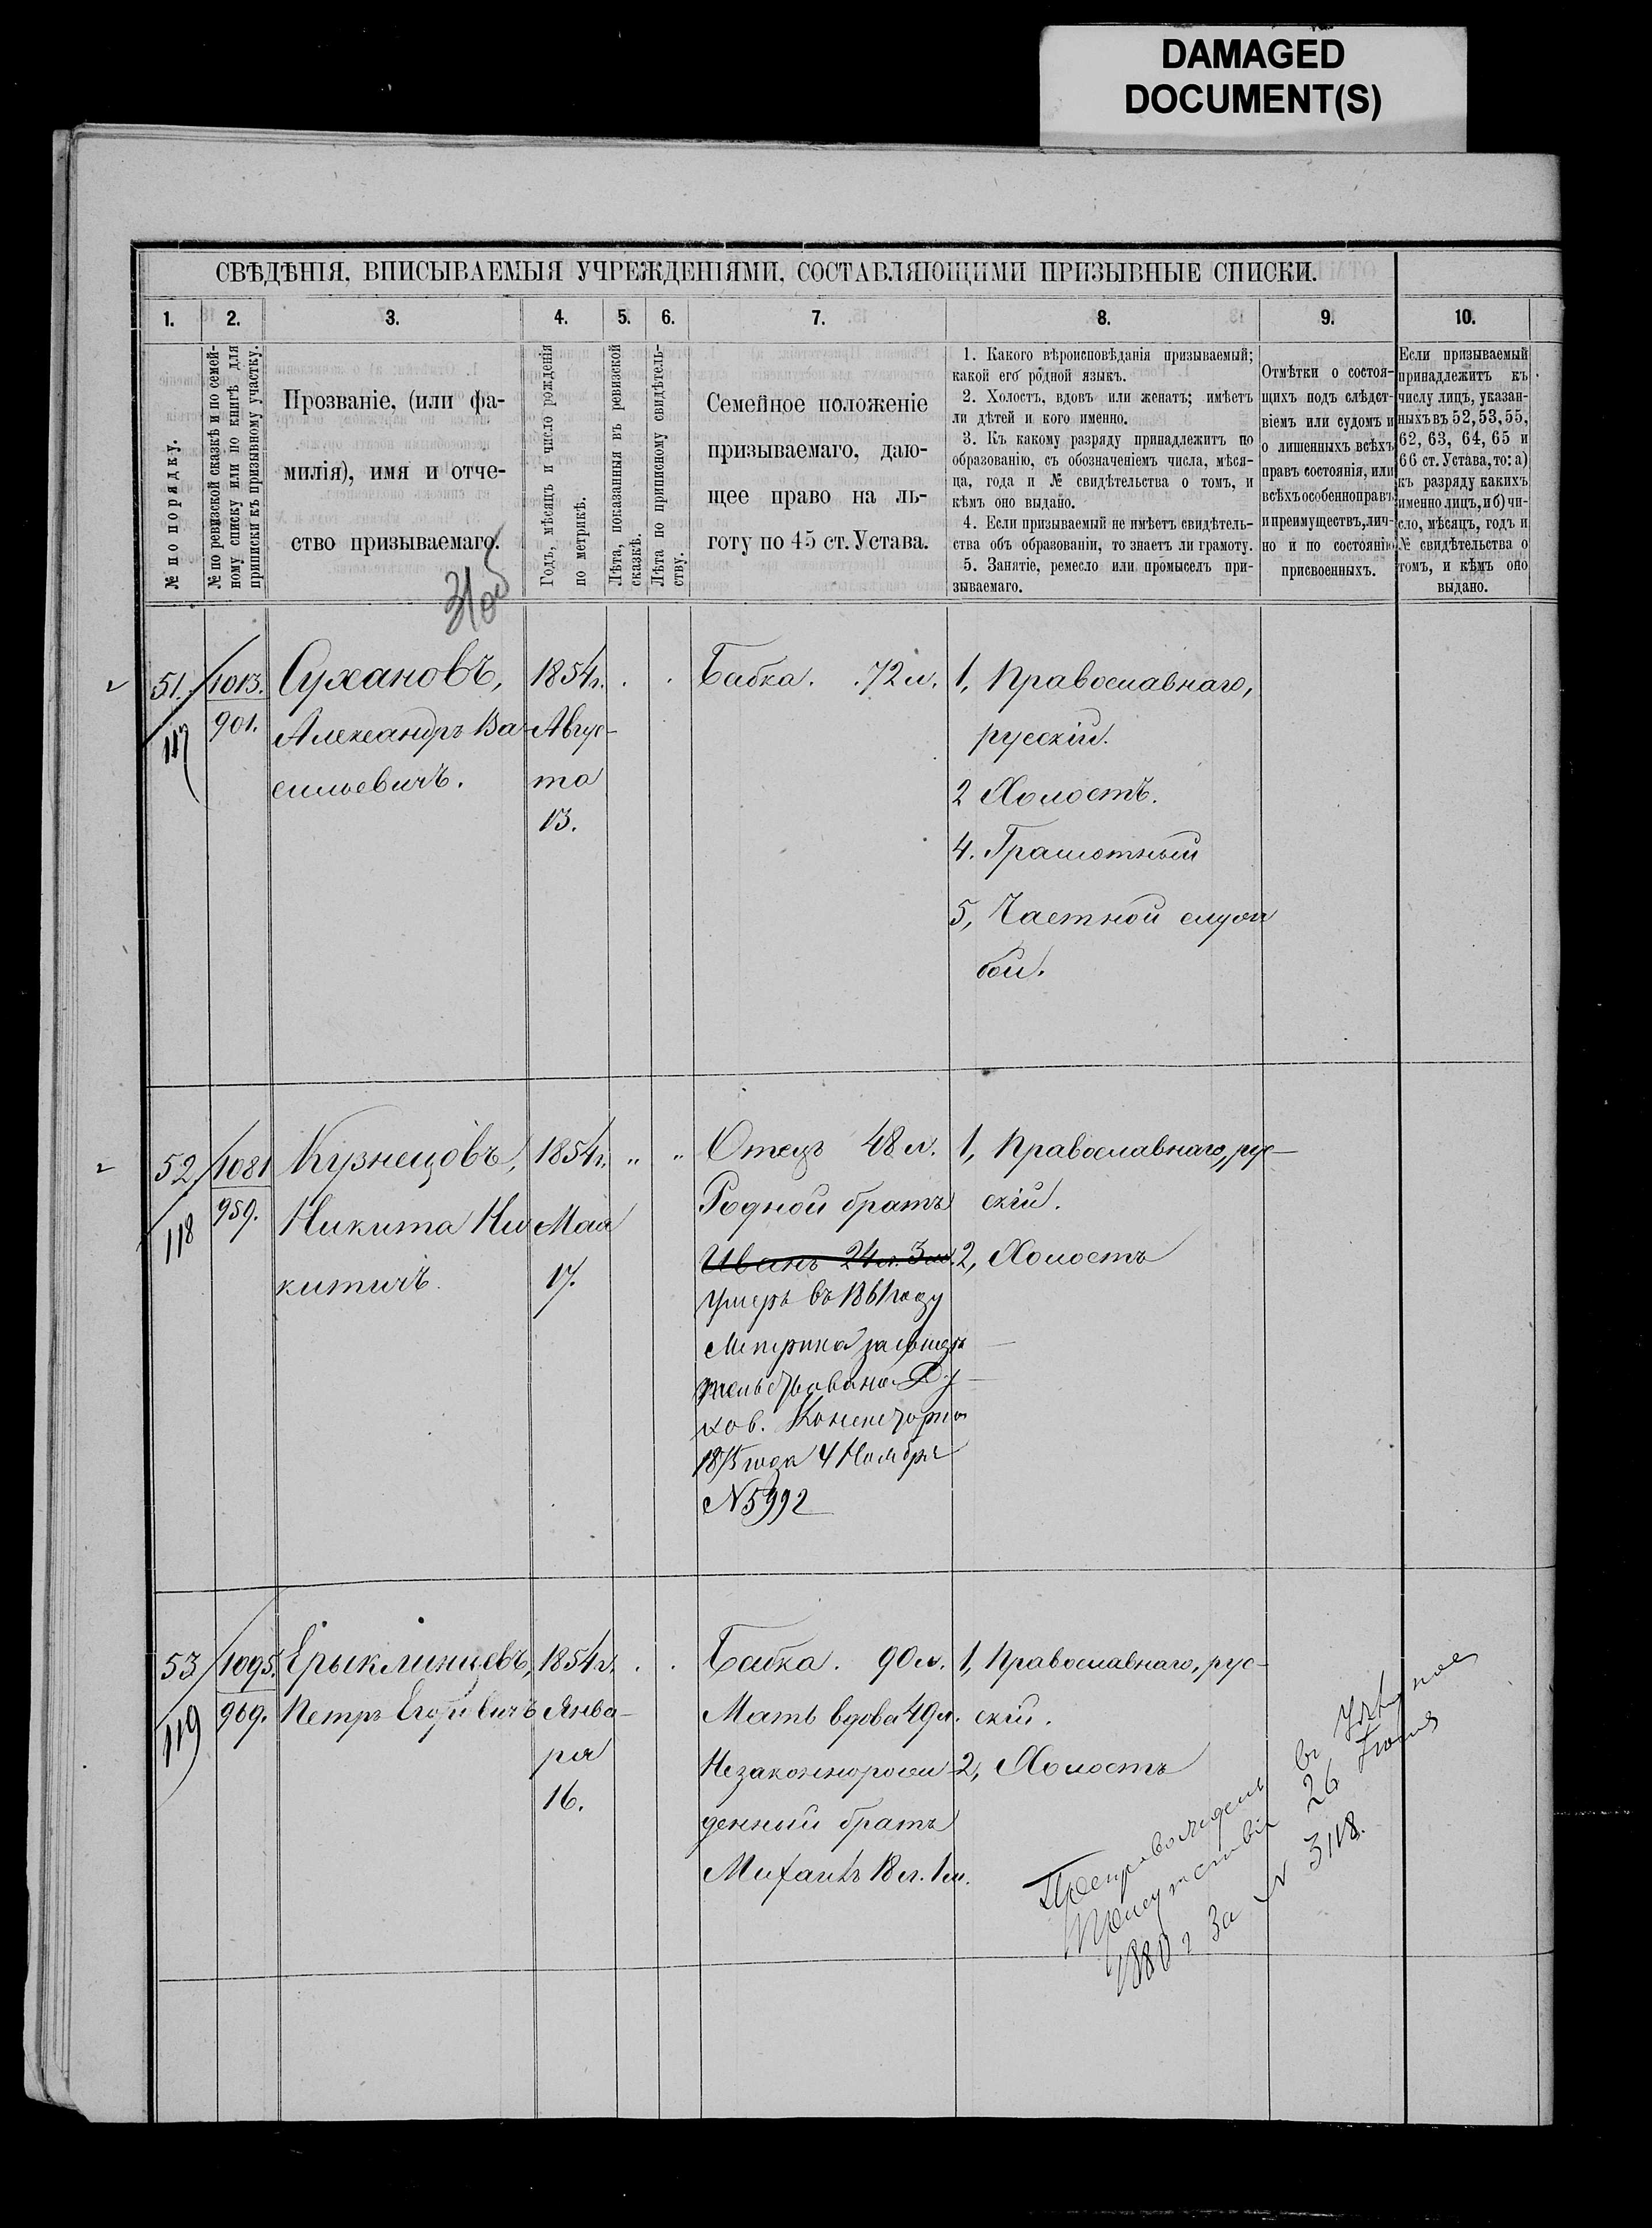 DAMAGED
DOCUMENT(S)
СВѢДѢНІЯ, ВПИСЫВАЕМЫЯ УЧРЕЖДЕНІЯМИ, СОСТАВЛЯЮЩИМИ ПРИЗЫВНЫЕ СПИСКИ.
1. 2. 3. 4. 5. 6. 7. 8. 9. 10.
№ по порядку.
№ по ревизской сказкѣ и по семей-
ному списку или по книгѣ для
приписки къ призывному участку.
Прозваніе, (или фа-
милія), имя и отче-
ство призываемаго.
31 об
Годъ, мѣсяцъ и число рожденія
по метрикѣ.
Лѣта, показанныя въ ревизской
сказкѣ.
Лѣта по приписному свидѣтель-
ству.
Семейное положеніе
призываемаго, даю-
щее право на ль-
готу по 45 ст. Устава.
1. Какого вѣроисповѣданія призываемый;
какой его родной языкъ.
2. Холостъ, вдовъ или женатъ; имѣетъ
ли дѣтей и кого именно.
3. Къ какому разряду принадлежитъ по
образованію, съ обозначеніемъ числа, мѣся-
ца, года и № свидѣтельства о томъ, и
кѣмъ оно выдано.
4. Если призываемый не имѣетъ свидѣтель-
ства объ образованіи, то знаетъ ли грамоту.
5. Занятіе, ремесло или промыселъ при-
зываемаго.
Отмѣтки о состоя-
щихъ подъ слѣдст-
віемъ или судомъ и
о лишенныхъ всѣхъ
правъ состоянія, или
всѣхъ особенно правъ
и преимуществъ, лич-
но и по состоянію
присвоенныхъ.
Если призываемый
принадлежитъ къ
числу лицъ, указан-
ныхъ въ 52, 53, 55,
62, 63, 64, 65 и
66 ст. Устава, то: а)
къ разряду какихъ
именно лицъ, и б) чи-
сло, мѣсяцъ, годъ и
№ свидѣтельства о
томъ, и кѣмъ оно
выдано.
51.
117
1013.
901.
Сухановъ,
Александръ Ва-
сильевичъ.
1854 г.
Авгус-
та
13.
Бабка. 72 л.
1, Православнаго,
русскій.
2 Холостъ.
4. Грамотный
5, Частной служ
бой.
52
118
1081
959.
Кузнецовъ,
Никита Ни
китичъ.
1854 г.
Мая
17.
Отецъ 48 л.
Родной братъ
Иванъ 24 л. 3 м.
умеръ въ 1861 году
Метрика засвидѣ
тельствована Ду
хов. Консисторіи
1875 года 4 Ноября
N 5992
1, Православнаго, рус-
скій.
2, Холостъ
53
119
1095.
969.
Ерыклинцевъ,
Петръ Егоровичъ
1854 г.
Янва-
ря
16.
Бабка. 90 л.
Мать вдова 49 л.
Незаконнорож-
денный братъ
Михаилъ 18 л. 1 м.
1, Православнаго, рус-
скій.
2, Холостъ
Препровожденъ въ Уѣздное
Присутствіе 26 Іюня
1880 г За N 3118.